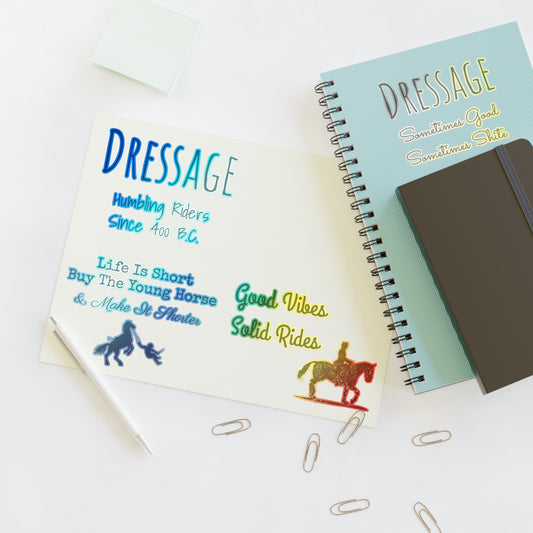 DRESSAGE
Humbling Riders
Since 400 B.C.
Life Is Short
Buy The Young Horse
& Make It Shorter
Good Vibes
Solid Rides
DRESSAGE
Sometimes Good
Sometimes Shite